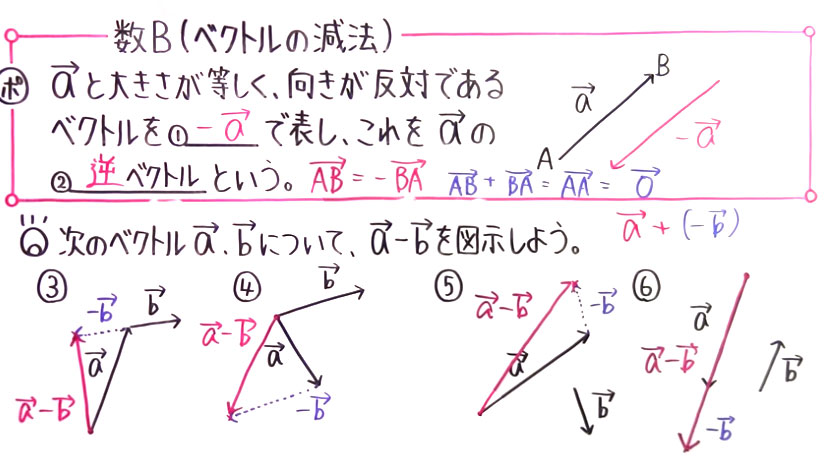 数B(ベクトルの減法)
ポ a⃗と大きさが等しく、向きが反対である
ベクトルを①-a⃗で表し、これをa⃗の
②逆ベクトルという。AB⃗=-BA⃗ AB⃗+BA⃗=AA⃗=0⃗
A B a⃗ -a⃗
次のベクトルa⃗、b⃗について、a⃗-b⃗を図示しよう。
a⃗+(-b⃗)
③ -b⃗ b⃗ a⃗ a⃗-b⃗
④ b⃗ a⃗-b⃗ a⃗ -b⃗
⑤ a⃗-b⃗ -b⃗ a⃗ b⃗
⑥ a⃗ a⃗-b⃗ b⃗ -b⃗